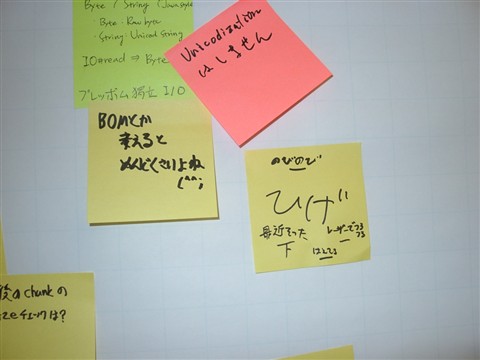 Byte / String (Javastyle
Byte: Raw byte
・String: Unicod String
IO#read ⇒ Byte
プレッポム獨立 I/O
Unicodization
はしません
BOMとか
考えると
めんどくさいよね
(^^;
のびのび
ひげ
最近そった
レーザーで
下
後の chunk の
zeチェックは?